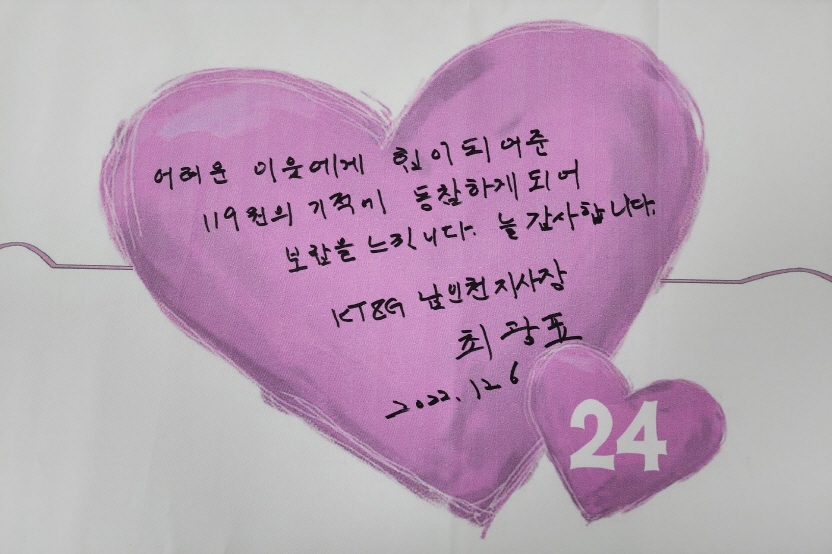 어려운 이웃에게 힘이 되어준
119원의 기적에 동참하게 되어
보람을 느낍니다. 늘 감사합니다.
KT&G 남인천지사장
최광표
2022. 12. 6
24